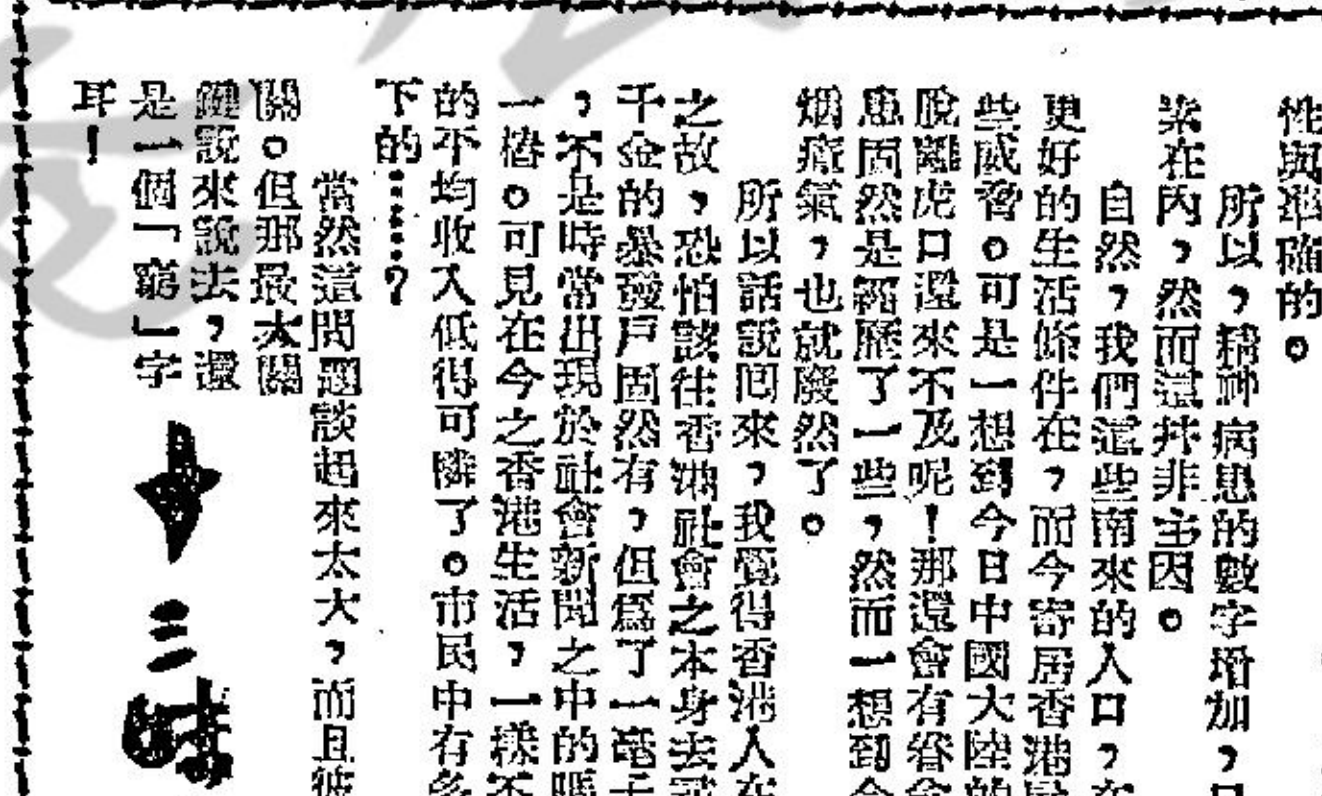 性與準確的。
所以,精神病患的數字增加,
素在內,然而這并非主因。
自然,我們這些南來的人口,在
更好的生活條件在,而今寄居香港
些威脅。可是一想到今日中國大陸的
脫離虎口還來不及呢!那還會有眷念
患固然是經歷了一些,然而一想到今
烟癮氣,也就廢然了。
所以話說囘來,我覺得香港人在
之故,恐怕該往香港社會之本身去尋
千金的暴發戶固然有,但爲了一毫子
,不是時常出現於社會新聞之中的嗎
一樁。可見在今之香港生活,一樣不
的不均收入低得可憐了。市民中有多
下的……?
當然這問題談起來太大,而且彼
關。但那最大關
鍵說來說去,還
是一個「窮」字
耳!
十三妹